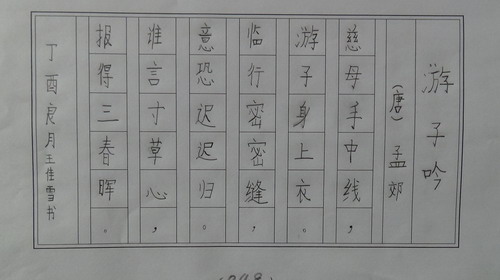 游子吟
(唐)孟郊
慈母手中线，
游子身上衣。
临行密密缝，
意恐迟迟归。
谁言寸草心，
报得三春晖。
丁酉良月王佳雪书